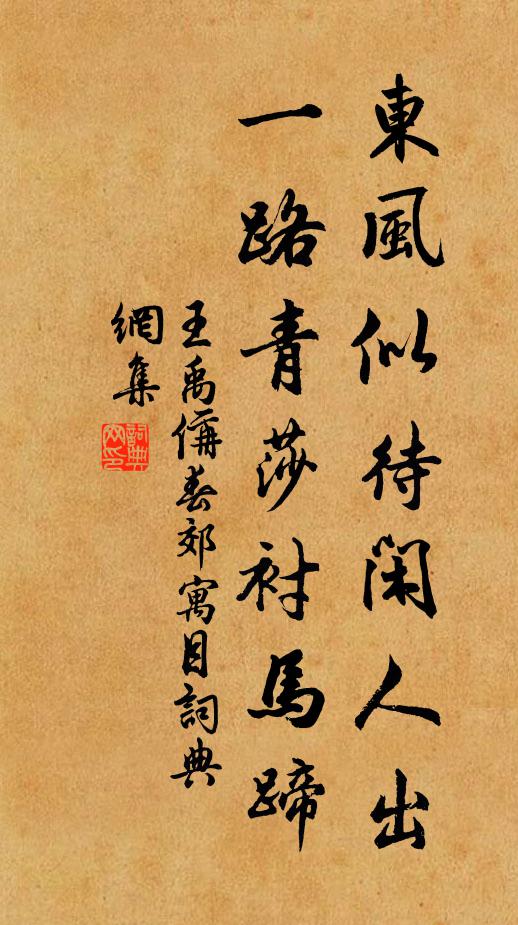 東風似待閑人出
一路青莎衬馬蹄
王禹偁春郊寓目詞典
網集
詞典
网印